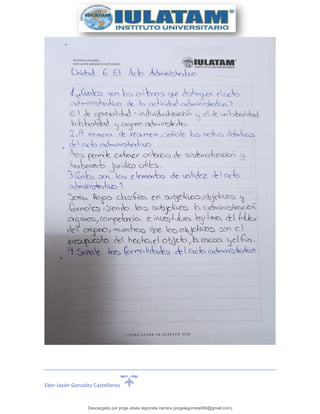 IULATAM
INSTITUTO UNIVERSITARIO
IULATAM
INSTITUTO UNIVERSITARIO
Unidad 6 El Acto Administrativo
1. ¿Cuáles son los criterios que distinguen el acto
administrativo de la actividad administrativa?
El de generalidad - individualización y el de unilateralidad
bilateralidad y órgano administrativo
2. A manera de resumen, señale las notas distintivas
del acto administrativo
Nos permite extraer criterios de sistematización y
tratamiento jurídico útiles.
3. Cuáles son los elementos de validez del acto
administrativo?
Serra Rojas clasifica en subjetivos, objetivos y
formales. Siendo los subjetivos la administración
órganos, competencia e investidura legítima del titular
del órgano, mientras que los objetivos son el
presupuesto del hecho, el objeto, la causa y el fin.
4. Señale tres formalidades del acto administrativo.
LICENCIATURA EN DERECHO
Eber Javier Gonzalez Castellanos
Descargado por jorge ulises lagometa carrera (jorgelagometa999@gmail.com)